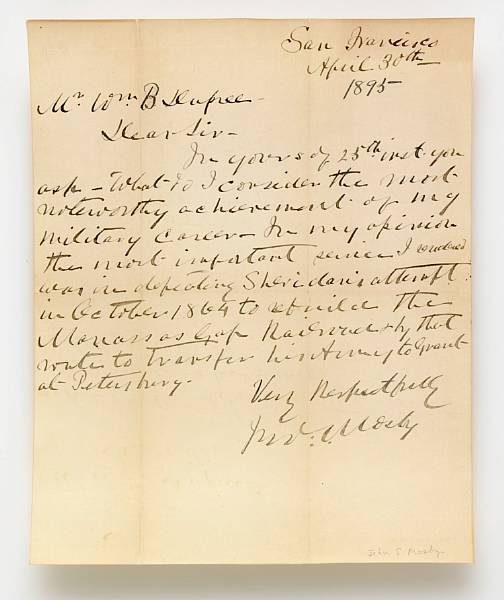 San Francisco
April 30th
1895
Mr. Wm B Dupree -
Dear Sir -
In yours of 25th inst you
ask - What do I consider the most
noteworthy achievement of my
military career - In my opinion
the most important service I rendered
was in defeating Sheridan's attempt
in October 1864 to rebuild the
Manassas Gap Railroad & by that
route to transfer his Army to Grant
at Petersburg.
Very Respectfully
Jno. S. Mosby
John S Mosby